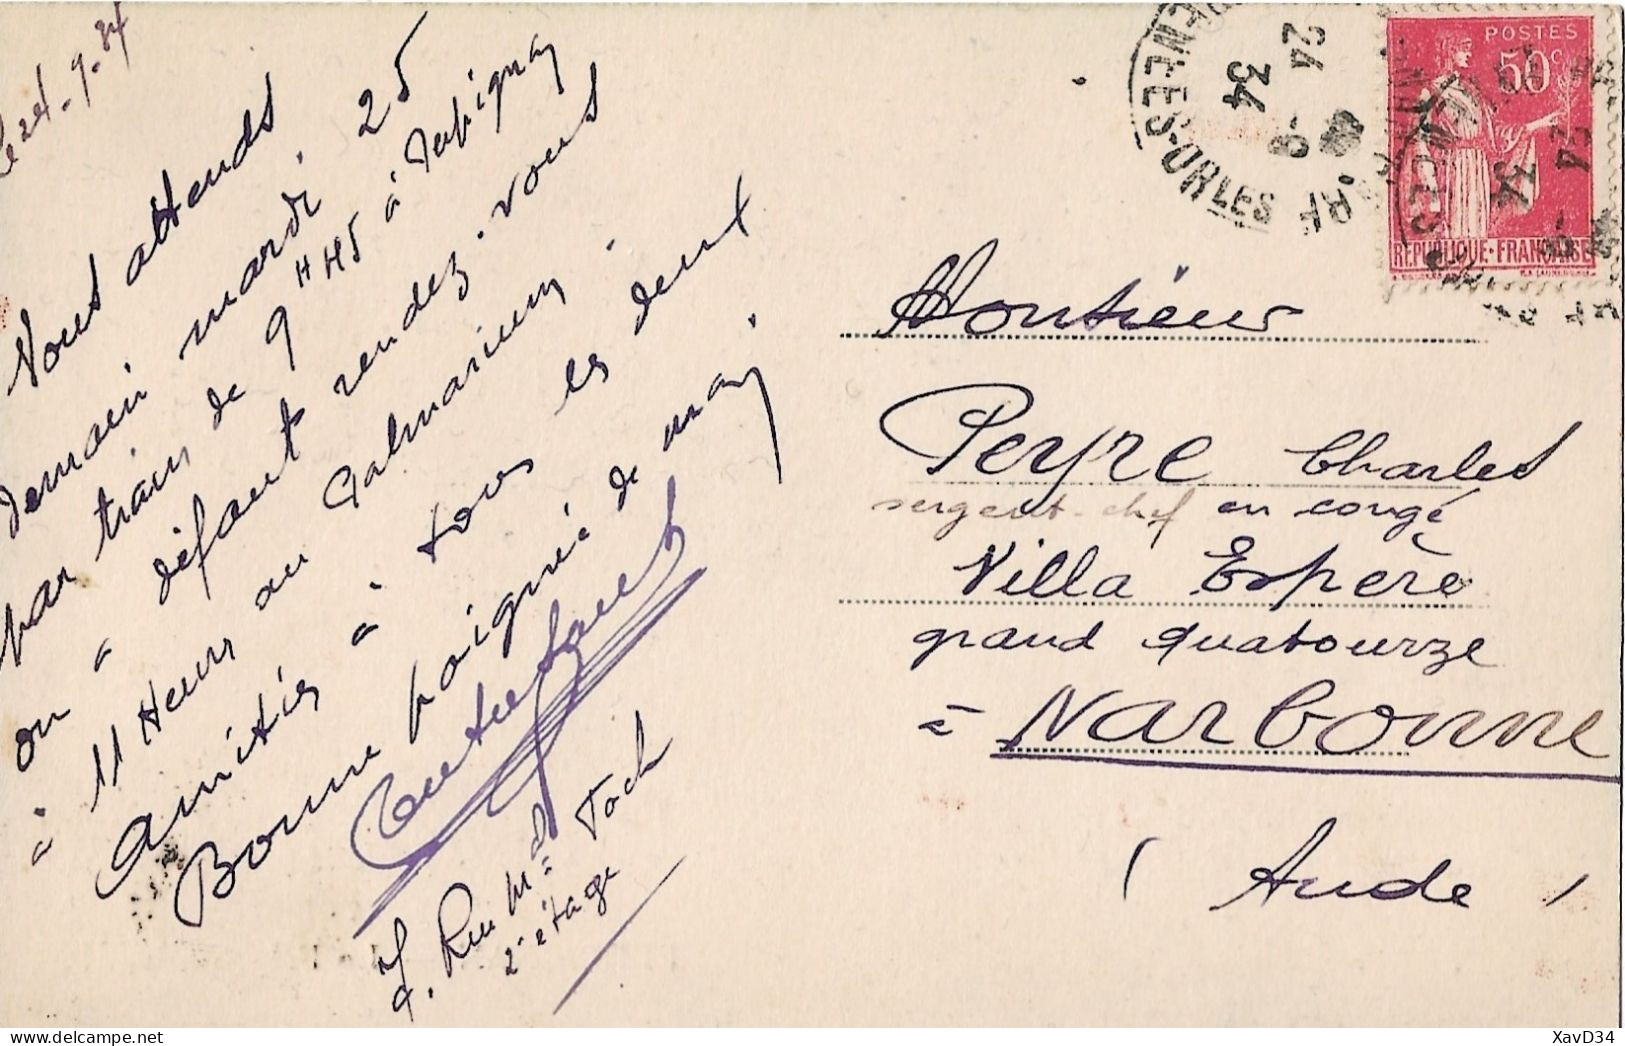 Le 24-9-34
Vous attends
demain mardi 25
par train de 9H45 à Perpignan
ou à défaut rendez-vous
à 11 Heures au Palmarium.
Amitiés à tous les deux
Bonne poignée de main
7. Rue Mal Foch
2e étage
24
34
POSTES
50c
REPUBLIQUE·FRANÇAISE
Monsieur
Peyre Charles
sergent-chef en congé
Villa Espère
grand Quatourze
à Narbonne
(Aude)
XavD34